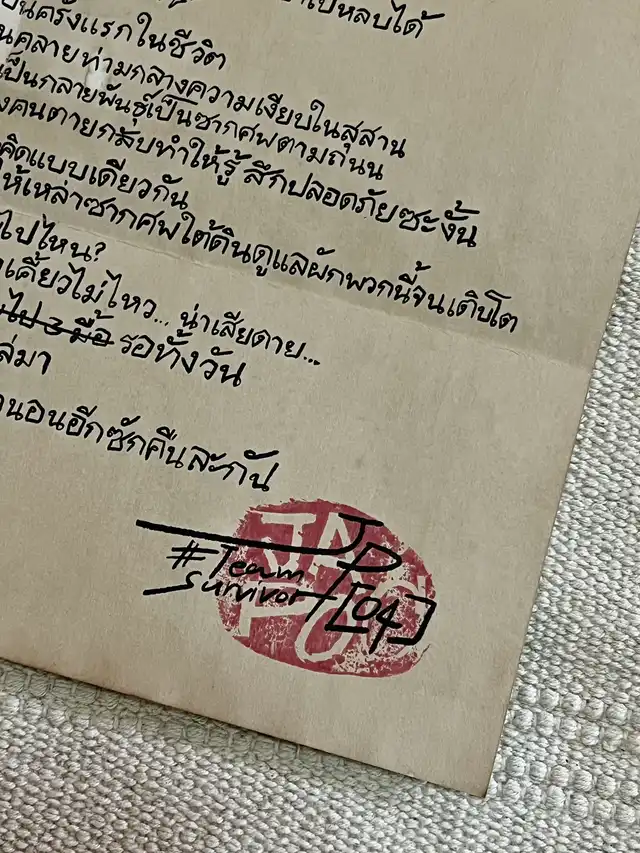 เป็นครั้งแรกในชีวิต
คลายท่ามกลางความเงียบในสุสาน
เป็นกลายพันธุ์เป็นซากศพตามถนน
คนตายกลับทำให้รู้สึกปลอดภัยซะงั้น
คิดแบบเดียวกัน
ให้เหล่าซากศพใต้ดินดูแลผักพวกนี้จนเติบโต
ไปไหน?
เคี้ยวไม่ไหว... น่าเสียดาย...
ไป 3 มื้อ รอทั้งวัน
นอนอีกซักคืนละกัน
JP
#Team
Survivor [04]